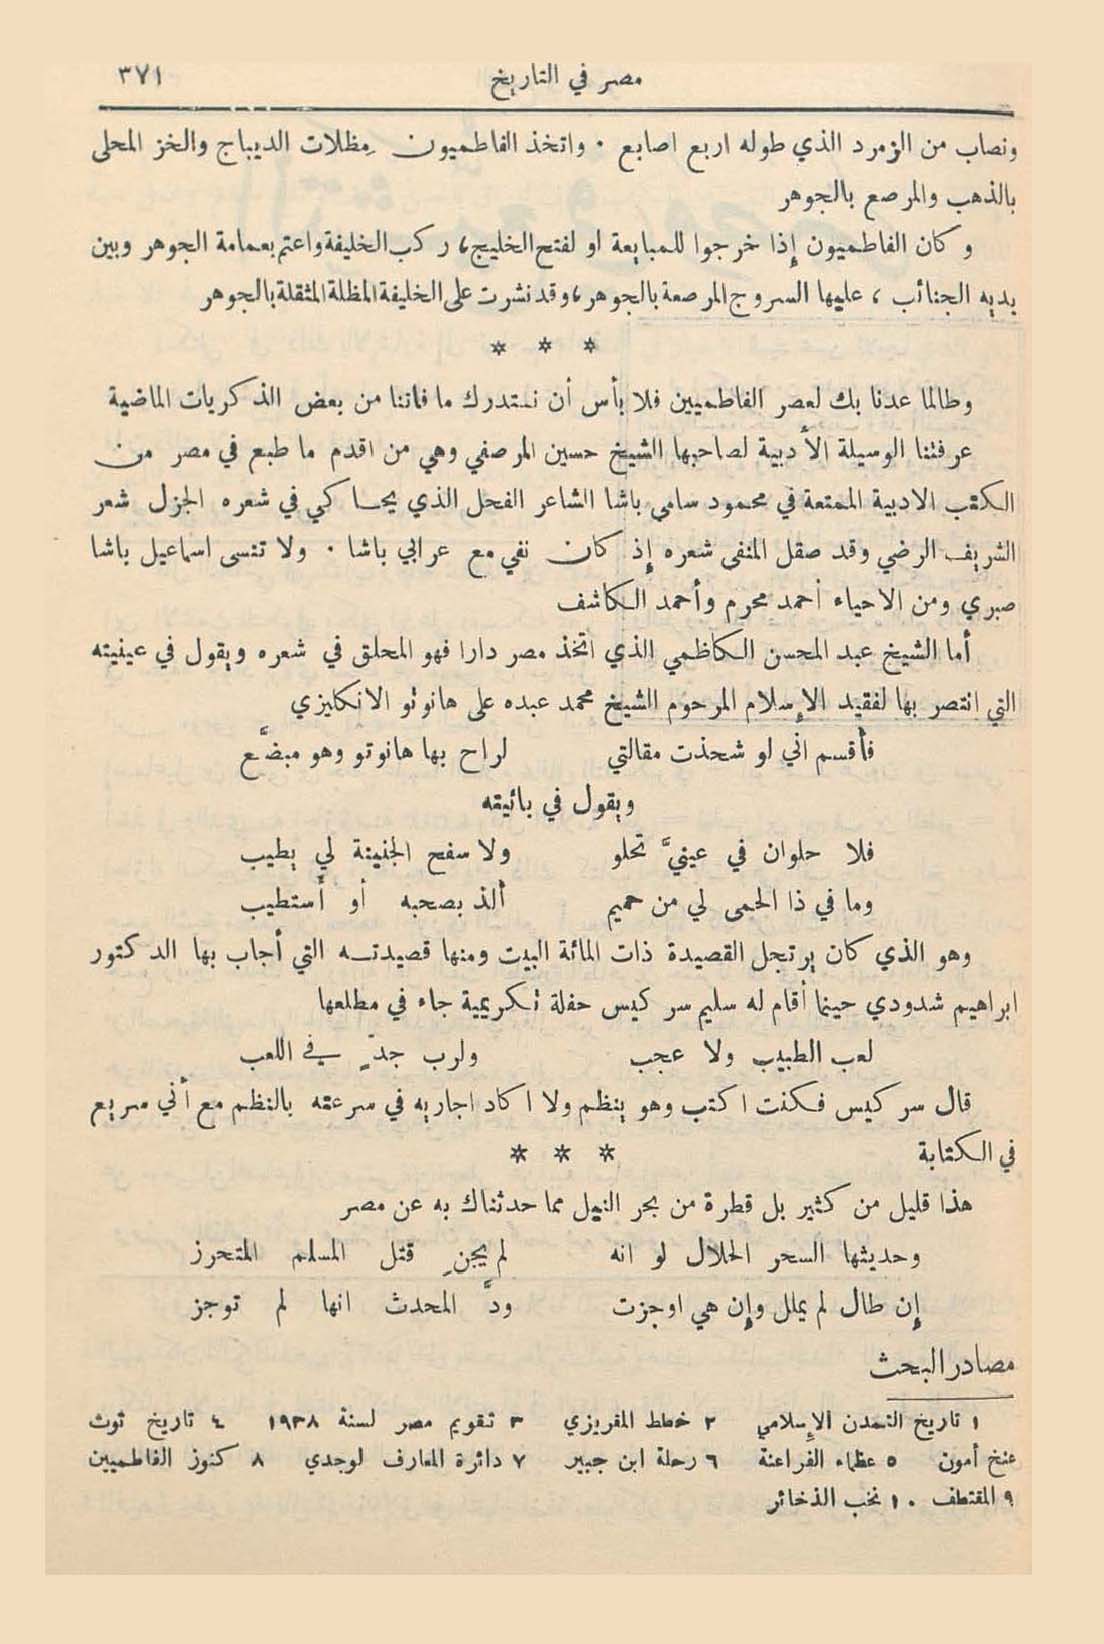 مصر في التاريخ ٣٧١
ونصاب من الزمرد الذي طوله اربع اصابع ٠ واتخذ الفاطميون مِظلات الديباج والخز المحلى
بالذهب والمرصع بالجوهر
وكان الفاطميون إذا خرجوا للمبايعة او لفتح الخليج، ركب الخليفة واعتم بعمامة الجوهر وبين
يديه الجنائب ، عليها السروج المرصعة بالجوهر، وقد نشرت على الخليفة المظلة المثقلة بالجوهر
* * *
وطالما عدنا بك لعصر الفاطميين فلا بأس أن نستدرك ما فاتنا من بعض الذكريات الماضية
عرفتنا الوسيلة الأدبية لصاحبها الشيخ حسين المرصفي وهي من اقدم ما طبع في مصر من
الكتب الادبية الممتعة في محمود سامي باشا الشاعر الفحل الذي يحاكي في شعره الجزل شعر
الشريف الرضي وقد صقل المنفى شعره إذ كان نفي مع عرابي باشا ٠ ولا تنسى اسماعيل باشا
صبري ومن الاحياء أحمد محرم وأحمد الكاشف
أما الشيخ عبد المحسن الكاظمي الذي اتخذ مصر دارا فهو المحلق في شعره ويقول في عينيته
التي انتصر بها لفقيد الإسلام المرحوم الشيخ محمد عبده على هانوتو الانكليزي
فأقسم اني لو شحذت مقالتي لراح بها هانوتو وهو مبضَّع
ويقول في بائيته
فلا حلوان في عينيَّ تحلو ولا سفح الجنينة لي يطيب
وما في ذا الحمى لي من حميم ألذ بصحبه أو أستطيب
وهو الذي كان يرتجل القصيدة ذات المائة البيت ومنها قصيدته التي أجاب بها الدكتور
ابراهيم شدودي حينما أقام له سليم سركيس حفلة تكريمية جاء في مطلعها
لعب الطبيب ولا عجب ولرب جدٍّ في اللعب
قال سركيس فكنت اكتب وهو ينظم ولا اكاد اجاريه في سرعته بالنظم مع أني سريع
في الكتابة * * *
هذا قليل من كثير بل قطرة من بحر النيل مما حدثناك به عن مصر
وحديثها السحر الحلال لو انه لم يجنِ قتل المسلم المتحرز
إن طال لم يملل وإن هي اوجزت ودَّ المحدث انها لم توجز
مصادر البحث
١ تاريخ التمدن الإسلامي ٢ خطط المقريزي ٣ تقويم مصر لسنة ١٩٣٨ ٤ تاريخ توت
عنخ أمون ٥ عظماء الفراعنة ٦ رحلة ابن جبير ٧ دائرة المعارف لوجدي ٨ كنوز الفاطميين
٩ المقتطف ١٠ نخب الذخائر